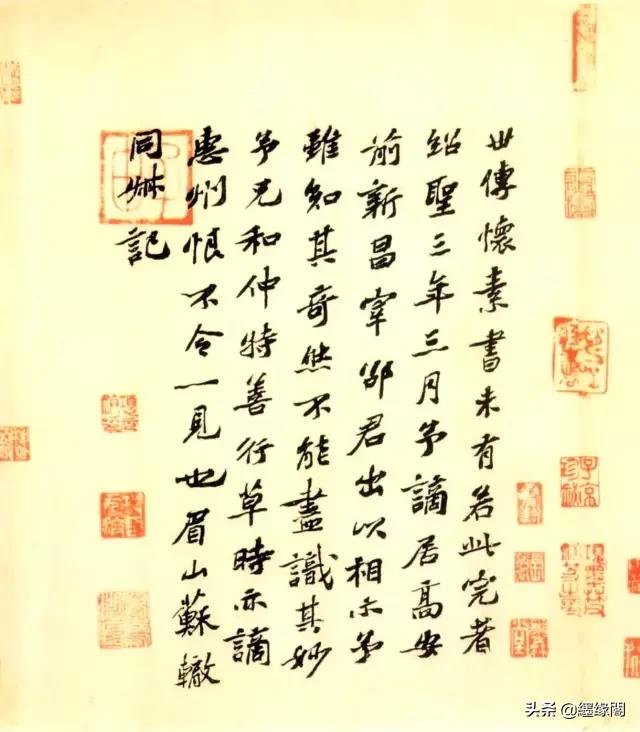 世傳懷素書未有若此完者
紹聖三年三月予謫居高安
前新昌宰邵君出以相示予
雖知其奇然不能盡識其妙
予兄和仲特善行草時亦謫
惠州恨不令一見也眉山蘇轍
同叔記
头条 @纏缘閣